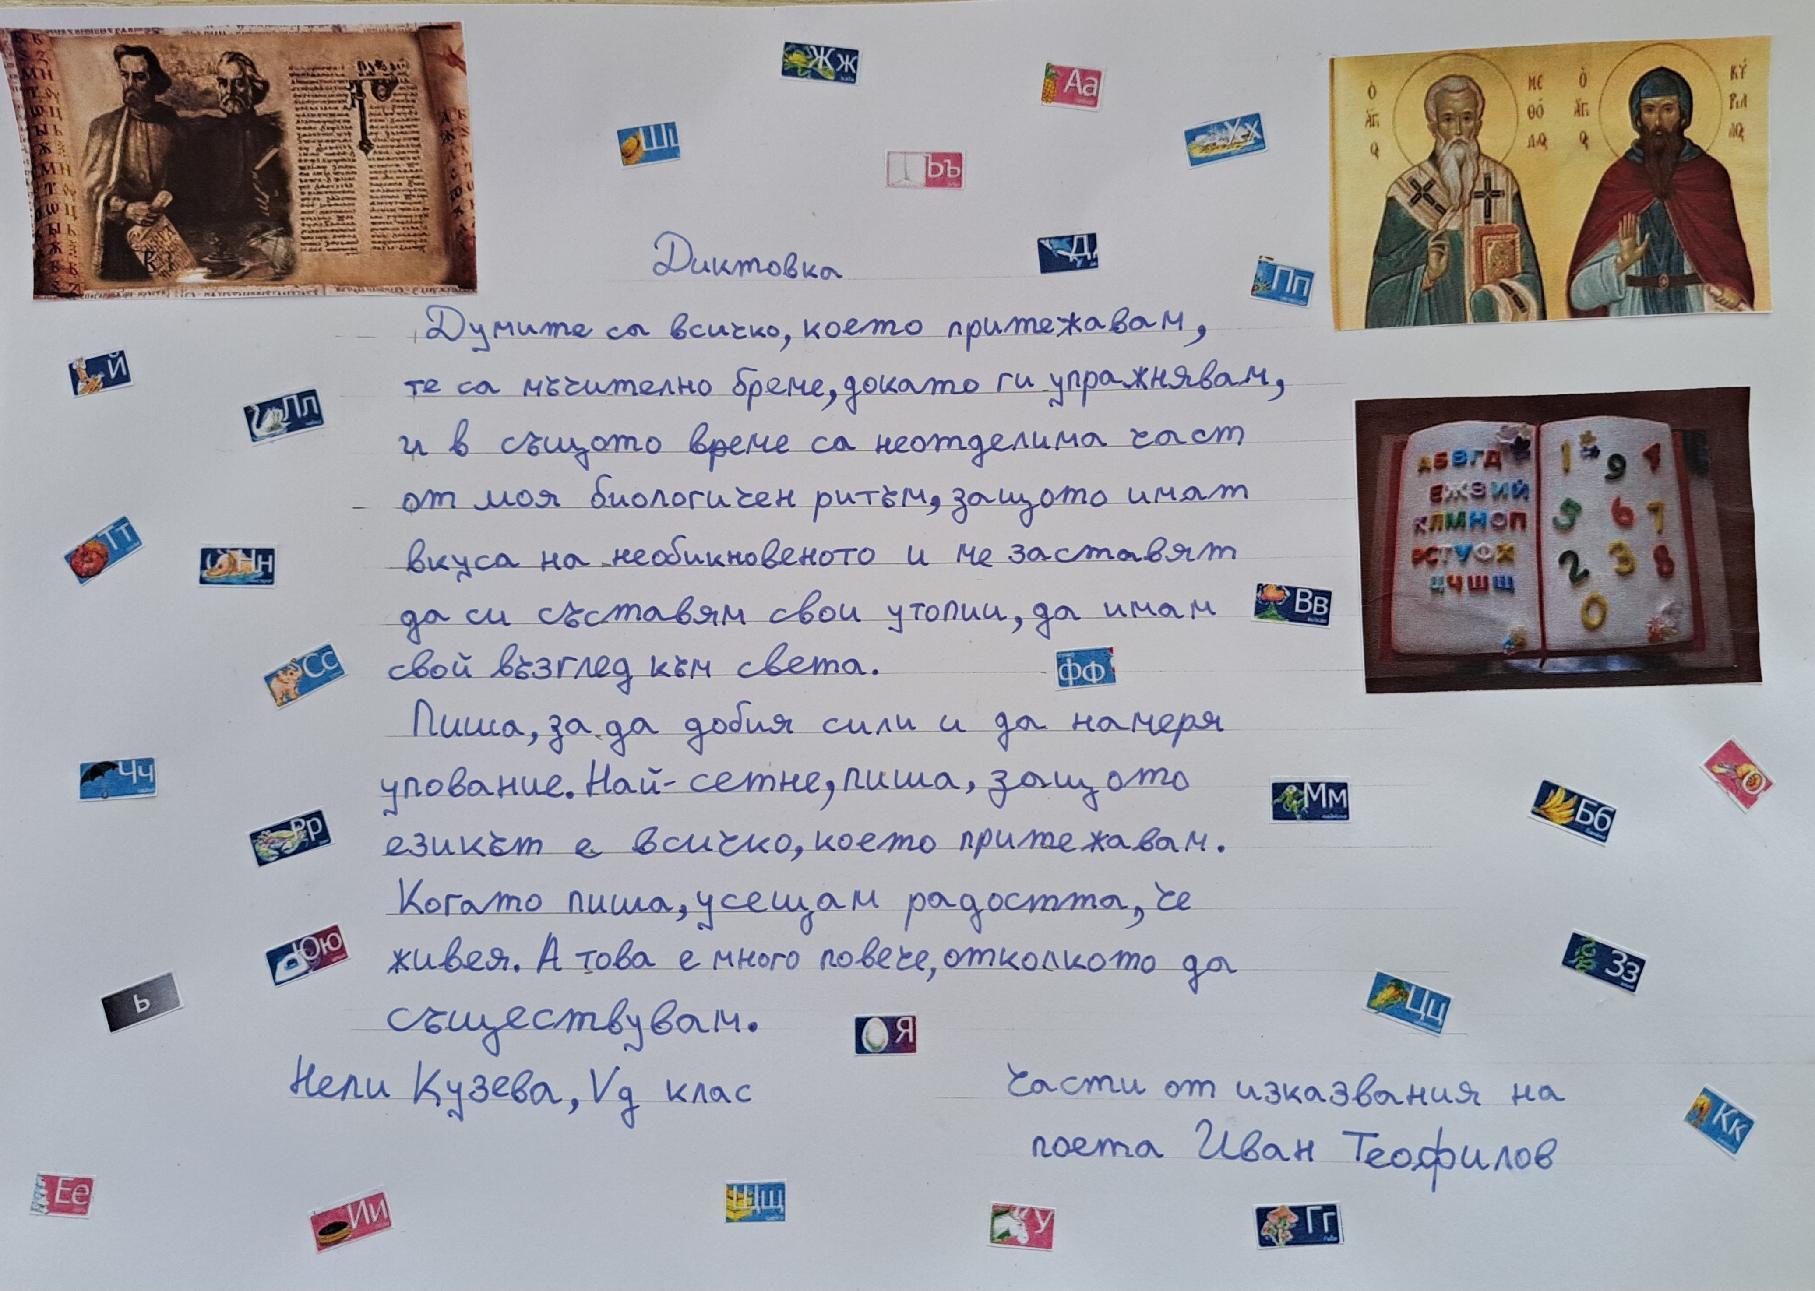 Жж
Аа
Шш
Ъъ
Хх
Диктовка
Д
Пп
Думите са всичко, което притежавам,
те са мъчително бреме, докато ги упражнявам,
и в същото време са неотделима част
от моя биологичен ритъм, защото имат
вкуса на необикновеното и ме заставят
да си съставям свои утопии, да имам
свой възглед към света.
Пиша, за да добия сили и да намеря
упование. Най-сетне, пиша, защото
езикът е всичко, което притежавам.
Когато пиша, усещам радостта, че
живея. А това е много повече, отколкото да
съществувам.
Нели Кузева, Vд клас
части от изказвания на
поета Иван Теофилов
Й
Лл
Тт
Нн
Сс
Чч
Рр
Юю
ь
Я
АБВГД
ЕЖЗИЙ
КЛМНОП
РСТУФХ
ЦЧШЩ
1 9 4
5 6 7
2 3 8
0
Вв
фф
Мм
Бб
О
Зз
Цц
Кк
Ее
Ии
Щщ
У
Гг